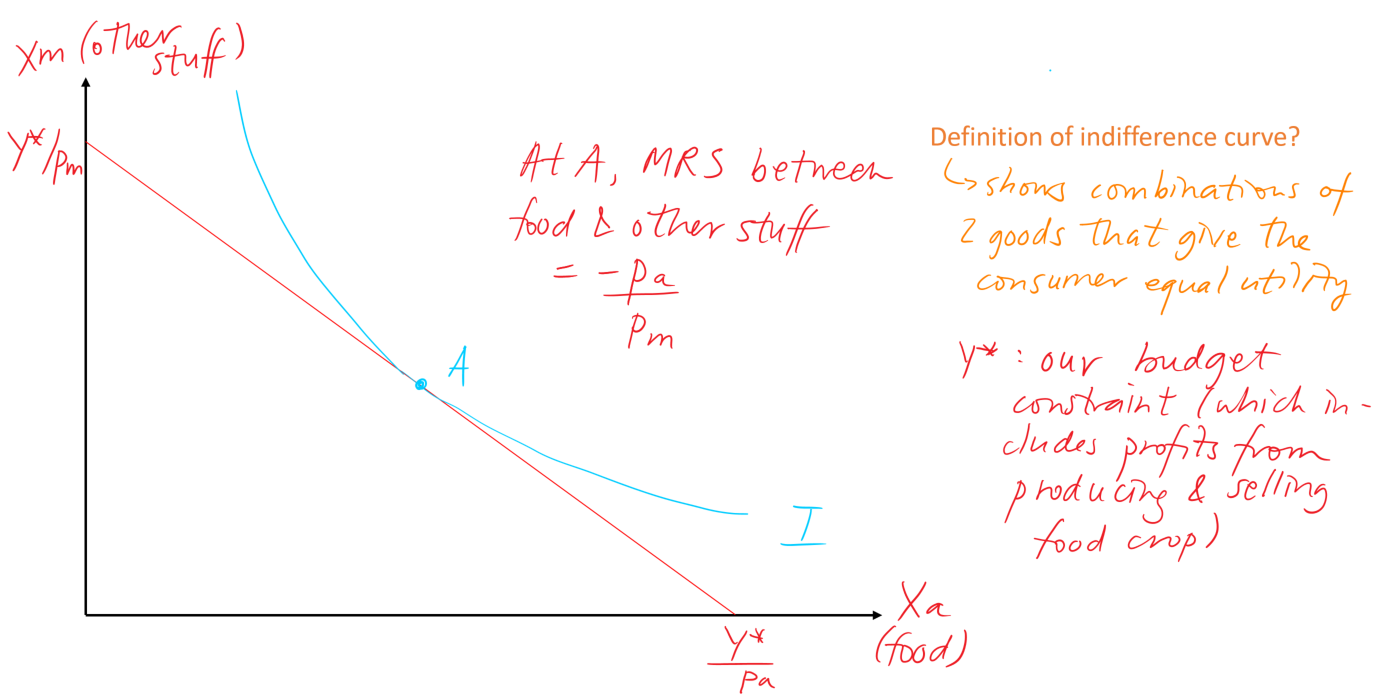 Xm (other
stuff)
Y*/pm
At A, MRS between
food & other stuff
= -pa
pm
A
I
Xa
(food)
Y*
pa
Definition of indifference curve?
↳ shows combinations of
2 goods that give the
consumer equal utility
Y* : our budget
constraint (which in-
cludes profits from
producing & selling
food crop)